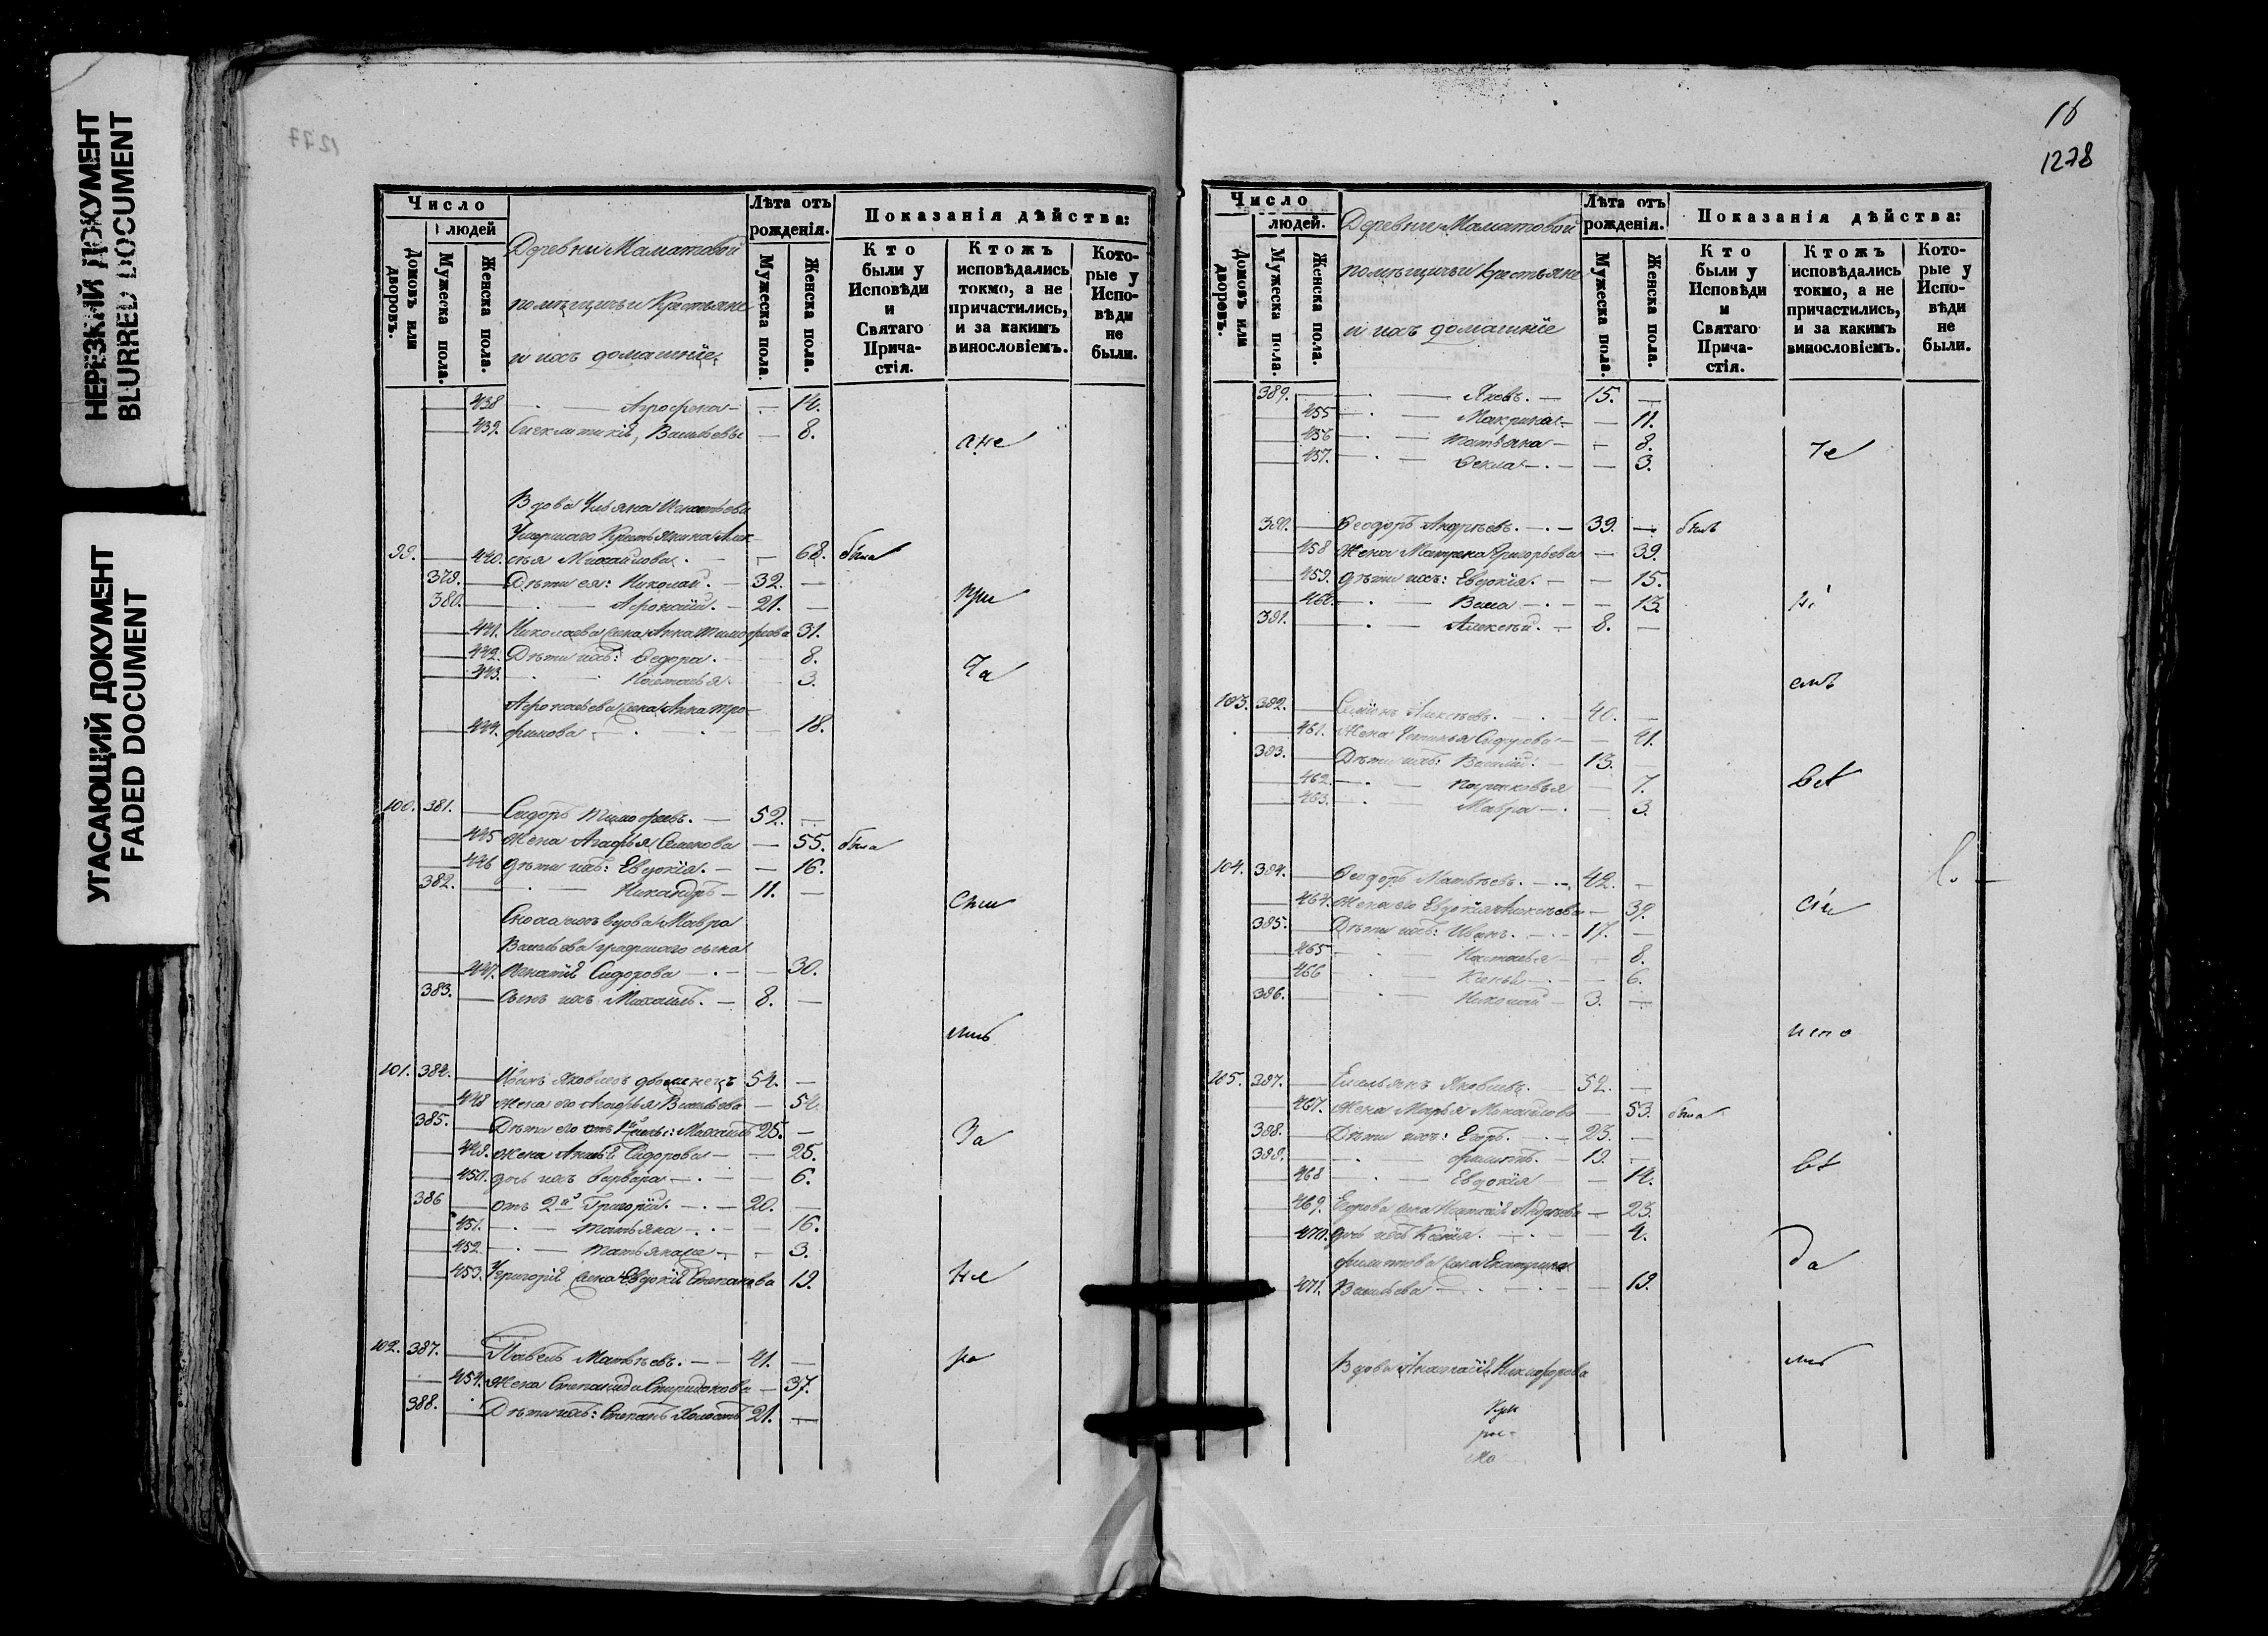 НЕРЕЗКИЙ ДОКУМЕНТ
BLURRED DOCUMENT
УГАСАЮЩИЙ ДОКУМЕНТ
FADED DOCUMENT
1277
Число
людей
Домовъ или дворовъ.
Мужеска пола.
Женска пола.
Деревни Маматовой
помѣщичьи Крестьяне
и ихъ домашніе
Лѣта отъ рожденія.
Мужеска пола.
Женска пола.
Показанія дѣйства:
Кто были у Исповѣди и Святаго Причастія.
Ктожъ исповѣдались токмо, а не причастились, и за какимъ винословіемъ.
Которые у Исповѣди не были.
438 14.
439. Васильевы 8.
Вдова Ульяна Игнатьева
Умершаго Крестьянина Алек-
99. 440. сѣя Михайлова. 68. была
379. Дѣти ея: Николай. 32.
380. Афонасій. 21. при
441. Николаева жена Анна Тимофеева 31.
442. Дѣти ихъ: Ѳедора. 8. ча
443. Настасья. 3.
Афонасьева жена Анна Тро-
444. фимова 18.
100. 381. Сидоръ Тимофеевъ. 52.
445 Жена Агафья Семенова 55. была
446 Дѣти ихъ: Евдокія. 16.
382. Никандръ 11.
Сноха ихъ вдова Мавра
Васильева умершаго сына
447. Игнатія Сидорова 30.
383. Сынъ ихъ Михаилъ. 8.
101. 384. Иванъ Яковлевъ двоженецъ 54.
448 Жена его Агафья Васильева 54.
385. Дѣти его отъ 1й жены: Михаилъ 25. За
449. Жена Сидорова 25.
450. дочь ихъ Варвара 6.
386 отъ 2й Григорій. 20.
451. Татьяна 16.
452. Татьяна же 3.
453. Григорія жена Евдокія Степанова 19. не
102. 387. Павелъ Матвѣевъ. 41.
454. Жена Степанида Спиридонова 37.
388. Дѣти ихъ: Степанъ Холостъ 21.
16
1278
Число
людей.
Домовъ или дворовъ.
Мужеска пола.
Женска пола.
Деревни Маматовой
помѣщичьи Крестьяне
и ихъ домашніе
Лѣта отъ рожденія.
Мужеска пола.
Женска пола.
Показанія дѣйства:
Кто были у Исповѣди и Святаго Причастія.
Ктожъ исповѣдались токмо, а не причастились, и за какимъ винословіемъ.
Которые у Исповѣди не были.
389. Яковъ. 15.
455 Макрина 11.
456 Татьяна 8.
457. Ѳекла 3.
390. Ѳеодоръ Андреевъ. 39. былъ
458 Жена Матрена Григорьева 39.
459. Дѣти ихъ: Евдокія. 15.
460. 13.
391. Алексѣй. 8.
103. 392. Семенъ Алексѣевъ. 40.
461. Жена Устинья Сидорова 41.
393. Дѣти ихъ: Василій. 13.
462. Парасковья 7.
463. Мавра 3.
104. 394. Ѳеодоръ Матвѣевъ. 42.
464. Жена его Евдокія Алексѣева 39.
385. Дѣти ихъ: Иванъ. 17.
465 Настасья 8.
466 6.
386. Николай 3.
испо
105. 387. Емельянъ Яковлевъ. 52.
467. Жена Марья Михайлова 53. была
388. Дѣти ихъ: Егоръ. 23.
389. Филиппъ. 19.
468 Евдокія 14.
469. Егорова жена Андреева 23.
470. дочь ихъ Ксенія. 4.
Филиппова жена Екатерина
471. Васильева 19.
Вдова Анастасія Никифорова